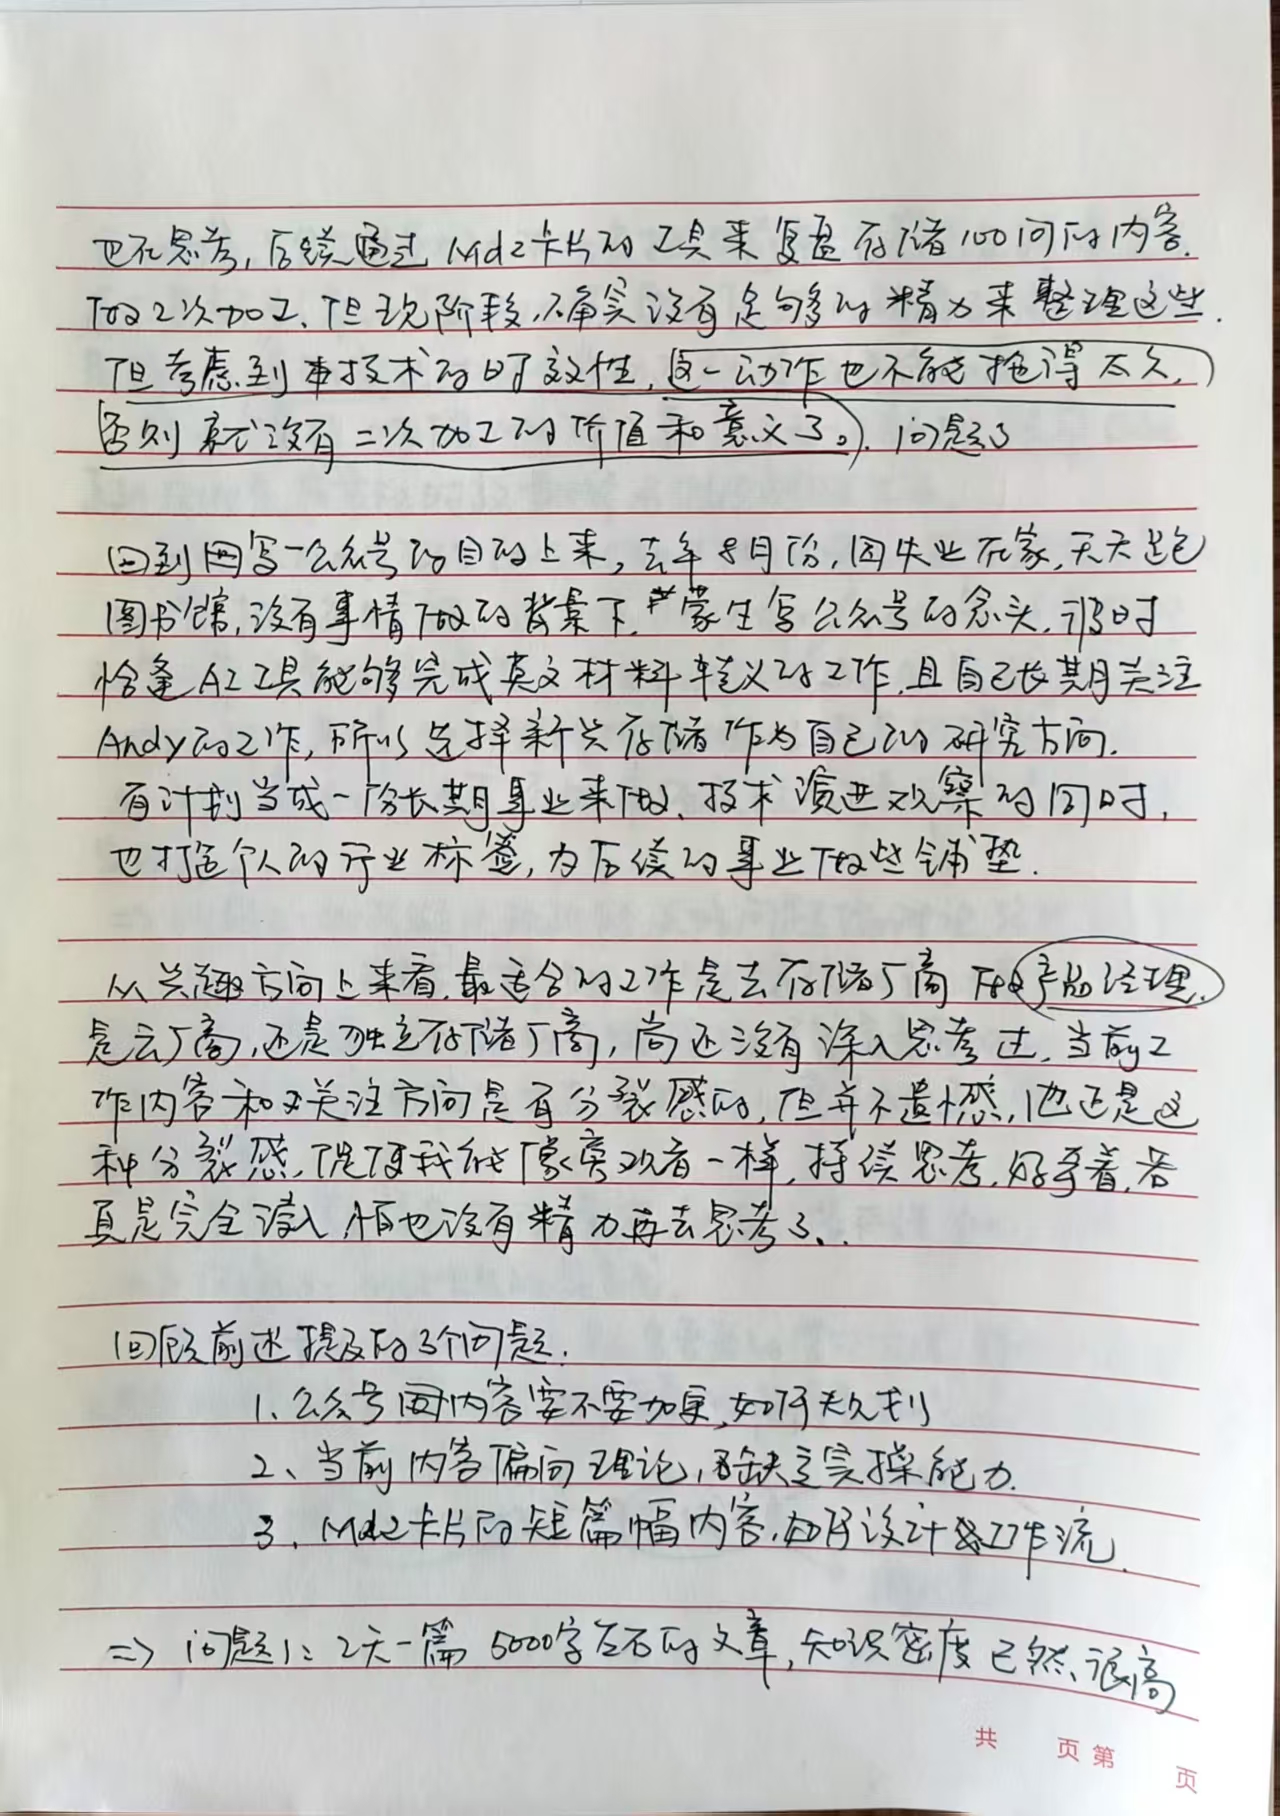 也在思考,后续通过 Md2卡片的工具来复盘存储100问的内容.
做2次加工.但现阶段,确实没有足够多的精力来整理这些.
但考虑到技术的时效性,这一动作也不能拖得太久,
否则就没有二次加工的价值和意义了。).问题3
回到写公众号的目的上来,去年8月份,因失业在家,天天跑
图书馆,没有事情做的背景下,萌生写公众号的念头.那时
恰逢AI工具能够完成英文材料转义的工作,且自己长期关注
Andy的工作,所以选择新兴存储作为自己的研究方向.
有计划当成一份长期事业来做.技术演进观察的同时,
也打造个人的行业标签,为后续的事业做些铺垫.
从兴趣方向上来看,最适合的工作是去存储厂商做产品经理.
是云厂商,还是独立存储厂商,尚还没有深入思考过.当前工
作内容和关注方向是有分裂感的,但并不遗憾,也还是这
种分裂感,促使我能像旁观者一样,持续思考,好奇着,若
真是完全潜入,怕也没有精力再去思考了..
回顾前述提及的3个问题.
1.公众号内容要不要加更,如何规划
2、当前内容偏向理论,缺乏实操能力.
3.Md2卡片的短篇幅内容.如何设计工作流.
=> 问题1:2天一篇 5000字左右的文章,知识密度已然很高
共 页 第 页